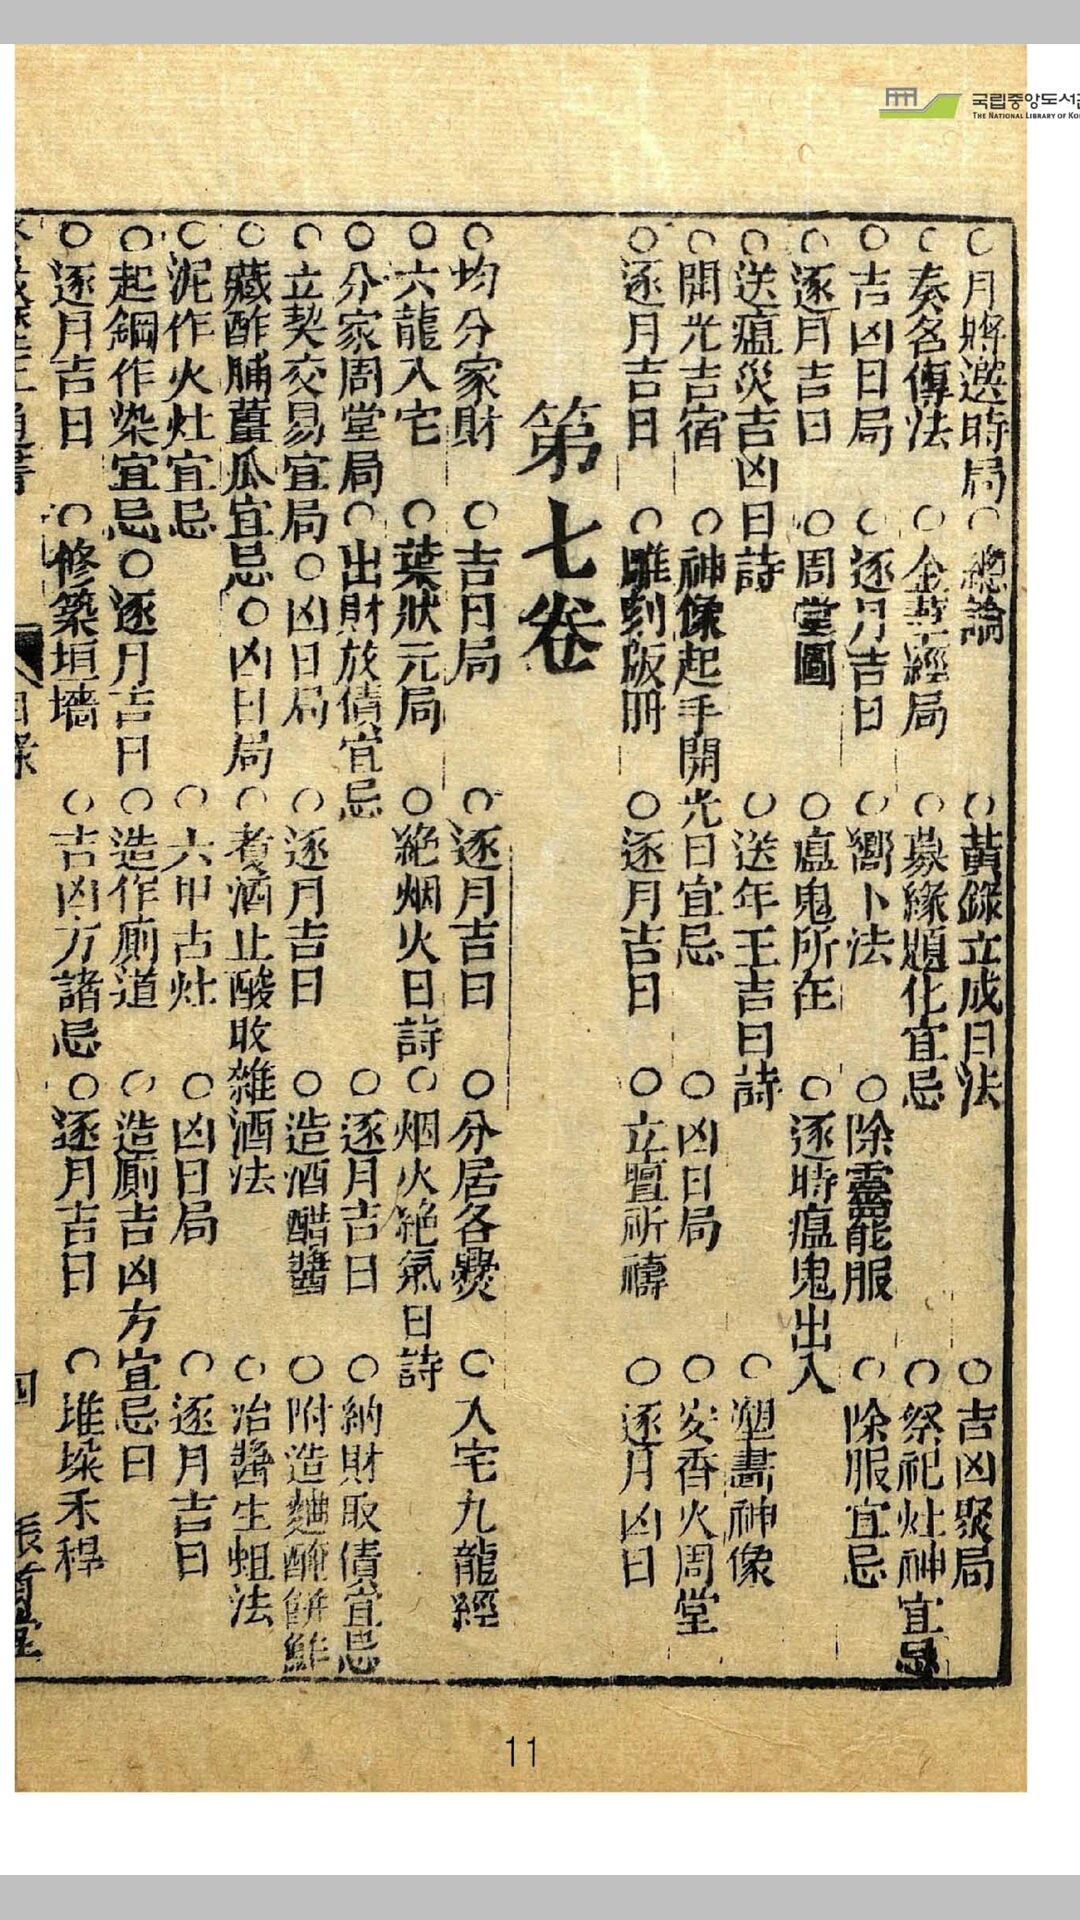 국립중앙도서관
THE NATIONAL LIBRARY OF KO
○月將選時局○總論○黃錄立成日法○吉凶聚局
○奏名傳法○金華經局○募緣題化宜忌○祭祀灶神宜忌
○吉凶日局○逐月吉日○嚮卜法○除靈罷服○除服宜忌
○逐月吉日○周堂圖○瘟鬼所在○逐時瘟鬼出入
○送瘟災吉凶日詩○送年王吉日詩○塑畫神像
○開光吉宿○神像起手開光日宜忌○凶日局○安香火周堂
○逐月吉日○雕刻版冊○逐月吉日○立壇祈禱○逐月凶日
第七卷
○均分家財○吉月局○逐月吉日○分居各爨○入宅九龍經
○六龍入宅○葉狀元局○絶烟火日詩○烟火絶氣日詩
○分家周堂局○出財放債宜忌○逐月吉日○納財取債宜忌
○立契交易宜局○凶日局○逐月吉日○造酒醋醬○附造麯醃餅鮓
○藏酢脯薑瓜宜忌○凶日局○煑酒止酸敗雜酒法○治醬生蛆法
○泥作火灶宜忌○六甲古灶○凶日局○逐月吉日
○起鋼作染宜忌○逐月吉日○造作廁道○造廁吉凶方宜忌日
○逐月吉日○修築垣墻○吉凶方諸忌○逐月吉日○堆垜禾稈
目錄 四
11